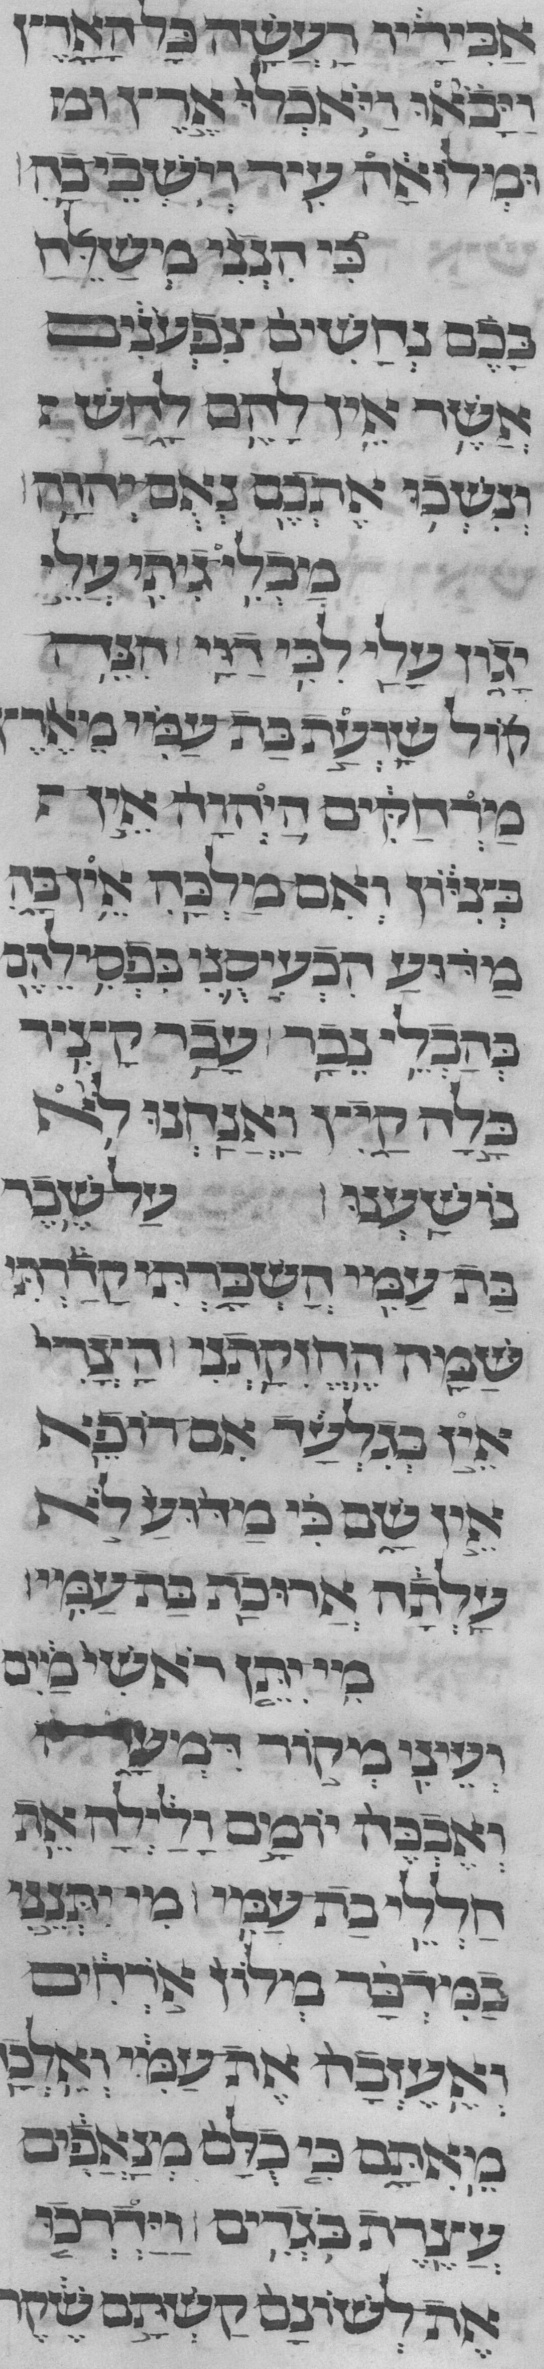 אַבִּירָ֔יו רָעֲשָׁ֖ה כׇּל־הָאָ֑רֶץ
וַיָּב֗וֹאוּ וַיֹּֽאכְלוּ֙ אֶ֣רֶץ ומ
וּמְלוֹאָ֔הּ עִ֖יר וְיֹ֥שְׁבֵי בָֽהּ׃
כִּי֩ הִנְנִ֨י מְשַׁלֵּ֜חַ
בָּכֶ֗ם נְחָשִׁים֙ צִפְעֹנִ֔ים
אֲשֶׁ֥ר אֵין־לָהֶ֖ם לָ֑חַשׁ
וְנִשְּׁכ֥וּ אֶתְכֶ֖ם נְאֻם־יְהוָֽה׃
מַבְלִ֥יגִיתִ֖י עֲלֵ֣י
יָג֑וֹן עָלַ֖י לִבִּ֥י דַוָּֽי׃ הִנֵּה
ק֞וֹל שַֽׁוְעַ֣ת בַּת־עַמִּ֗י מֵאֶ֙רֶץ֙
מַרְחַקִּ֔ים הַֽיהוָה֙ אֵ֣ין
בְּצִיּ֔וֹן אִם־מַלְכָּ֖הּ אֵ֣ין בָּ֑הּ
מַדּ֗וּעַ הִכְעִס֛וּנִי בִּפְסִלֵיהֶ֖ם
בְּהַבְלֵ֥י נֵכָֽר׃ עָבַ֥ר קָצִ֖יר
כָּ֣לָה קָ֑יִץ וַאֲנַ֖חְנוּ ל֥וֹא
נוֹשָֽׁעְנוּ׃ עַל־שֶׁ֥בֶר
בַּת־עַמִּ֖י הׇשְׁבָּ֑רְתִּי קָדַ֕רְתִּי
שַׁמָּ֖ה הֶחֱזִקָֽתְנִי׃ הַצֳרִי֙
אֵ֣ין בְּגִלְעָ֔ד אִם־רוֹפֵ֖א
אֵ֣ין שָׁ֑ם כִּ֗י מַדּ֙וּעַ֙ לֹ֣א
עָֽלְתָ֔ה אֲרֻכַ֖ת בַּת־עַמִּֽי׃
מִֽי־יִתֵּ֤ן רֹאשִׁי֙ מַ֔יִם
וְעֵינִ֖י מְק֣וֹר דִּמְעָ֑ה
וְאֶבְכֶּה֙ יוֹמָ֣ם וָלַ֔יְלָה אֵ֖ת
חַֽלְלֵ֥י בַת־עַמִּֽי׃ מִֽי־יִתְּנֵ֣נִי
בַמִּדְבָּ֗ר מְלוֹן֙ אֹֽרְחִ֔ים
וְאֶֽעֶזְבָה֙ אֶת־עַמִּ֔י וְאֵלְכָ֖ה
מֵֽאִתָּ֑ם כִּ֤י כֻלָּם֙ מְנָ֣אֲפִ֔ים
עֲצֶ֖רֶת בֹּגְדִֽים׃ וַֽיַּדְרְכ֤וּ
אֶת־לְשׁוֹנָם֙ קַשְׁתָּ֣ם שֶׁ֔קֶר